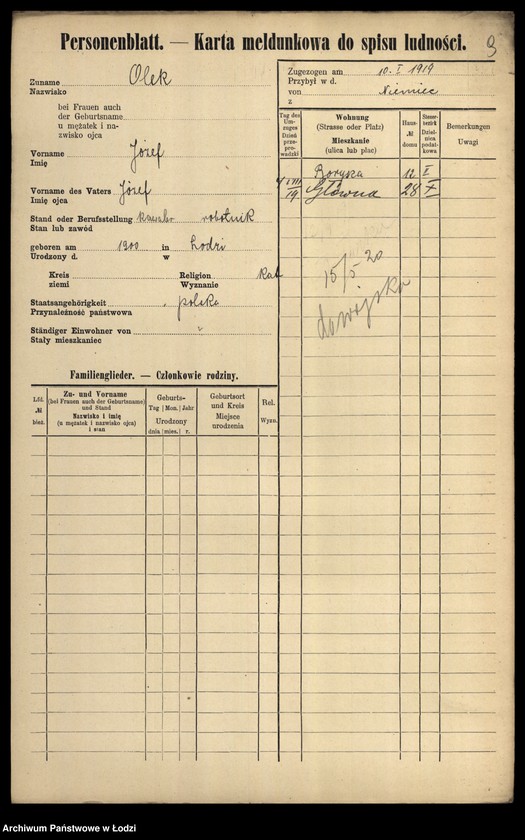 Personenblatt. — Karta meldunkowa do spisu ludności.
Zuname Olek
Nazwisko
bei Frauen auch
der Geburtsname
u mężatek i na-
zwisko ojca
Vorname Józef
Imię
Vorname des Vaters Józef
Imię ojca
Stand oder Berufsstellung kawaler robotnik
Stan lub zawód
geboren am 1900 in Łodzi
Urodzony d. w
Kreis Religion Kat
ziemi Wyznanie
Staatsangehörigkeit polska
Przynależność państwowa
Ständiger Einwohner von
Stały mieszkaniec
Familienglieder. — Członkowie rodziny.
Lfd. № bież.
Zu- und Vorname
(bei Frauen auch der Geburtsname)
und Stand
Nazwisko i imię
(u mężatek i nazwisko ojca)
i stan
Geburts-
Tag Mon. Jahr
Urodzony
dnia mies. r.
Geburtsort
und Kreis
Miejsce
urodzenia
Rel.
Wyzn.
Zugezogen am 10. I 1919
Przybył w d.
von Niemiec
z
Tag des
Um-
zuges
Dzień
przepro-
wadzki
Wohnung
(Strasse oder Platz)
Mieszkanie
(ulica lub plac)
Haus-
№
domu
Steuer-
bezirk
Dziel-
nica
podat-
kowa
Bemerkungen
Uwagi
12 I
VIII 19 Główna 28 X
15/5 20
do wojska
Archiwum Państwowe w Łodzi